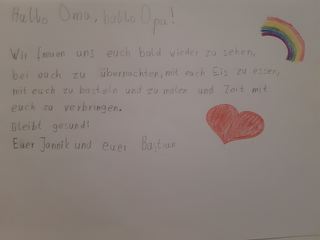 Hallo Oma, hallo Opa!
Wir freuen uns euch bald wieder zu sehen,
bei euch zu übernachten, mit euch Eis zu essen,
mit euch zu basteln und zu malen und Zeit mit
euch zu verbringen.
Bleibt gesund!
Euer Jannik und euer Bastian